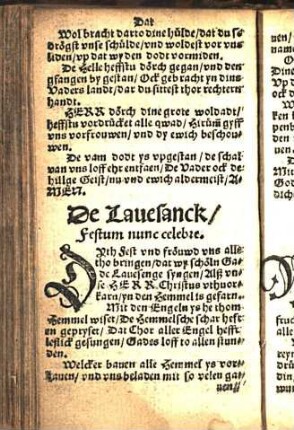 Dat
Wol bracht darto dine hülde / dat du se
drögst vnse schülde / vnd woldest vor vns
liden / vp dat wy den dodt vormiden.
De Helle hefftu dörch gegan / vnd den
gfangen by gestan / Ock gebracht yn dins
Vaders landt / dar du sittest thor rechtern
handt.
HERR dörch dine grote woldadt /
hefftu vordrücket alle qwad / Hirüm gyff
vns vorfrouwen / vnd dy ewich beschou-
wen.
De vam dodt ys vpgestan / de schal
van vns loff ehr entfaen / De Vader ock de
hillge Geist / nu vnd ewich aldermeist / A-
MEN.
De Lauesanck /
Festum nunc celebre.
Dyth Fest vnd fröuwd vns alls
tho bringen / dat wy schöln Ga-
de Lauesenge syngen / Alß vn-
se HERR Christus vthuor-
karn / yn den Hemmel is gefarn.
Mit den Engeln ys he thom
Hemmel wiset / De Hemmelsche schar hefft
en gepryset / Dat Chor aller Engel hefft
leflick gesungen / Gades loff to allen stun-
den.
Welcker bauen alle Hemmel ys vor-
hauen / vnd vns beladen mit so velen ga-
uen /